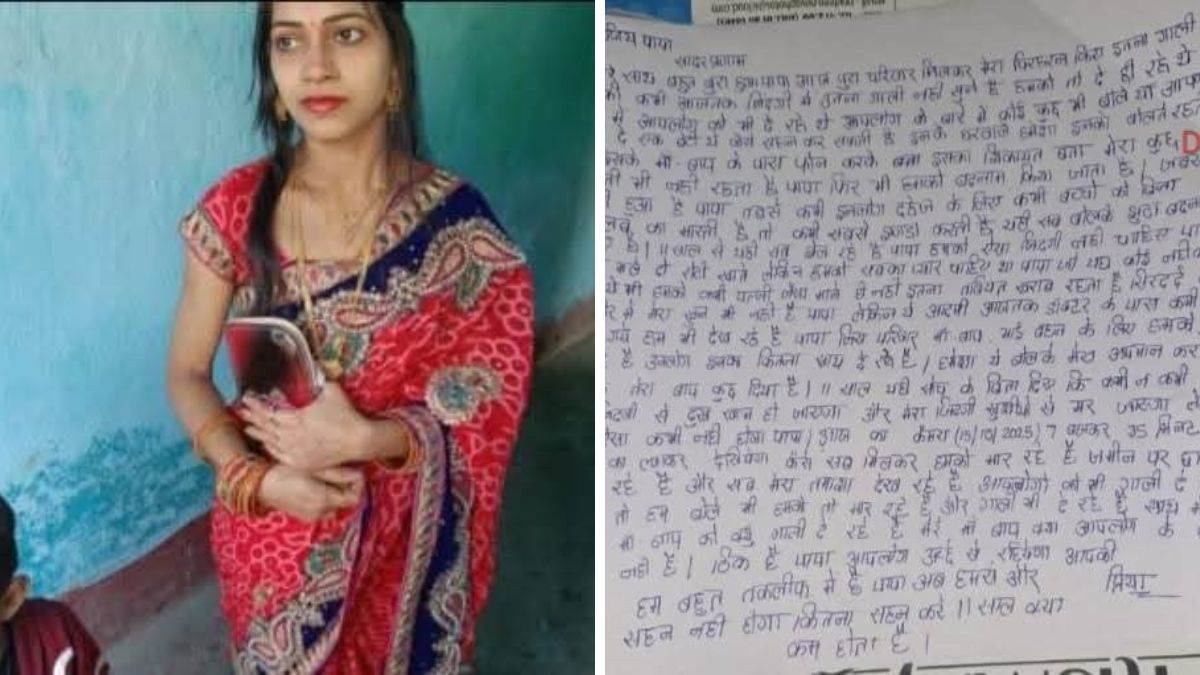 प्रिय पापा
सादर प्रणाम
साथ बहुत बुरा हुआ पापा आज पुरा परिवार मिलकर मेरा किया इतना गाली
कभी आजतक जिंदगी में इतना गाली नहीं सुने है हमको तो दे ही रहे थे
आपलोग को भी दे रहे थे आपलोग के बारे में कोई कुछ भी बोले या आप
कैसे सहन कर सकती है इनके घरवाले हमेशा इनको बोलते रहा
माँ-बाप के पास फोन करके बता इसका शिकायत बता मेरा कुछ
भी नहीं रहता है पापा फिर भी हमको बदनाम किया जाता है। जबसे
हुआ है पापा तबसे कभी इनलोग दहेज के लिए कभी बच्चो को बिना
का मारती है तो कभी सबसे झगड़ा करती है यही सब बोलके झुठा बदनाम
है। 11 साल से यही सब झेल रहे है पापा हमको ऐसा जिंदगी नहीं चाहिए पा
दो रोटी खाते लेकिन हमको सबका प्यार चाहिए था पापा जो यहाँ कोई नहीं
भी हमको कभी पत्नी जैसा माने ही नहीं इतना तबियत खराब रहता है सिरदर्द
मेरा खून भी नहीं है पापा लेकिन ये आदमी आजतक डॉक्टर के पास कभी
हम भी देख रहे है पापा जिस परिवार माँ बाप भाई बहन के लिए हमको
है उनलोग इनका कितना साथ दे रहे है। हमेशा ये बोलके मेरा अपमान कर
तेरा बाप कुछ दिया है। 11 साल यही सोच के बिता दिए कि कभी न कभी
से दुख खत्म हो जाएगा और मेरा जिंदगी खुशीयो से भर जाएगा
ऐसा कभी नहीं होगा पापा। आज का कैमरा (15/10/2025) 7 बजकर 35 मिनट
का लगाकर देखियेगा कैसे सब मिलकर हमको मार रहे है जमीन पर
रहे है और सब मेरा तमाशा देख रहे है आपलोगो को भी गाली दे
तो हम बोले भी हमको तो मार रहे है और गाली भी दे रहे है साथ में
माँ बाप को क्यु गाली दे रहे है मेरे माँ बाप क्या आपलोग के
नहीं है। ठीक है पापा आपलोग अच्छे से रहियेगा आपकी
हम बहुत तकलीफ में है पापा अब हमसे और प्रिया
सहन नहीं होगा कितना सहन करे 11 साल क्या
कम होता है।